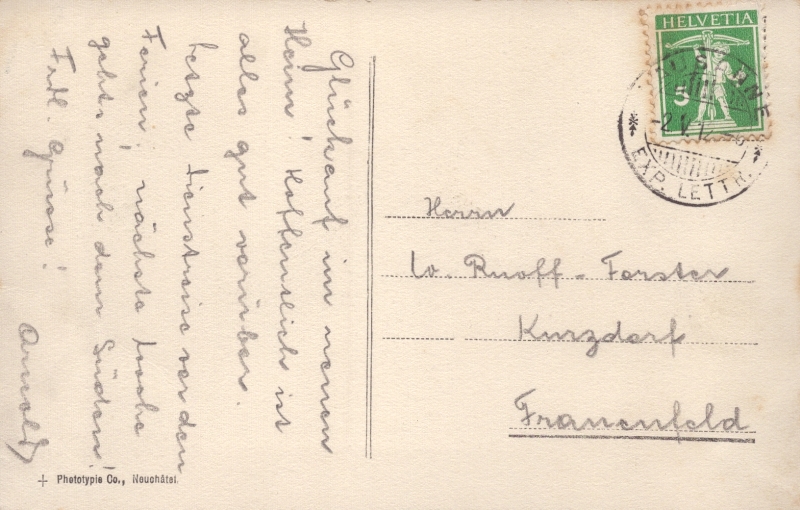 Glückauf im neuen
Heim! Hoffentlich ist
alles gut vorüber.
Letzte Dienstreise vor den
Ferien, nächste Woche
gehts nach dem Süden!
Frdl. Grüsse!
Arnold
Herrn
Ruoff-Forster
Kurzdorf
Frauenfeld
HELVETIA
5
LAUSANNE
EXP. LETTR.
Phototypie Co., Neuchâtel.